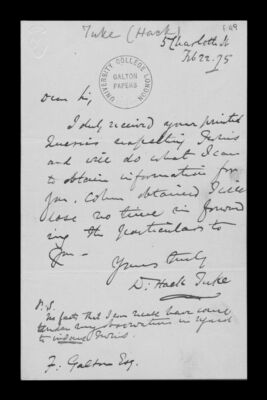 Tuke (Hack)
149
5 Charlotte St
Feb 22. 75
UNIVERSITY COLLEGE LONDON
GALTON PAPERS
Dear Sir,
I duly received your printed
Queries respecting Twins
and will do what I can
to obtain information for
you. When obtained I will
lose no time in forward
ing the particulars to
you.
Yours truly
D. Hack Tuke
P.S.
No facts that I can recall have come
under my observation in regard
to insane Twins.
F. Galton Esq.